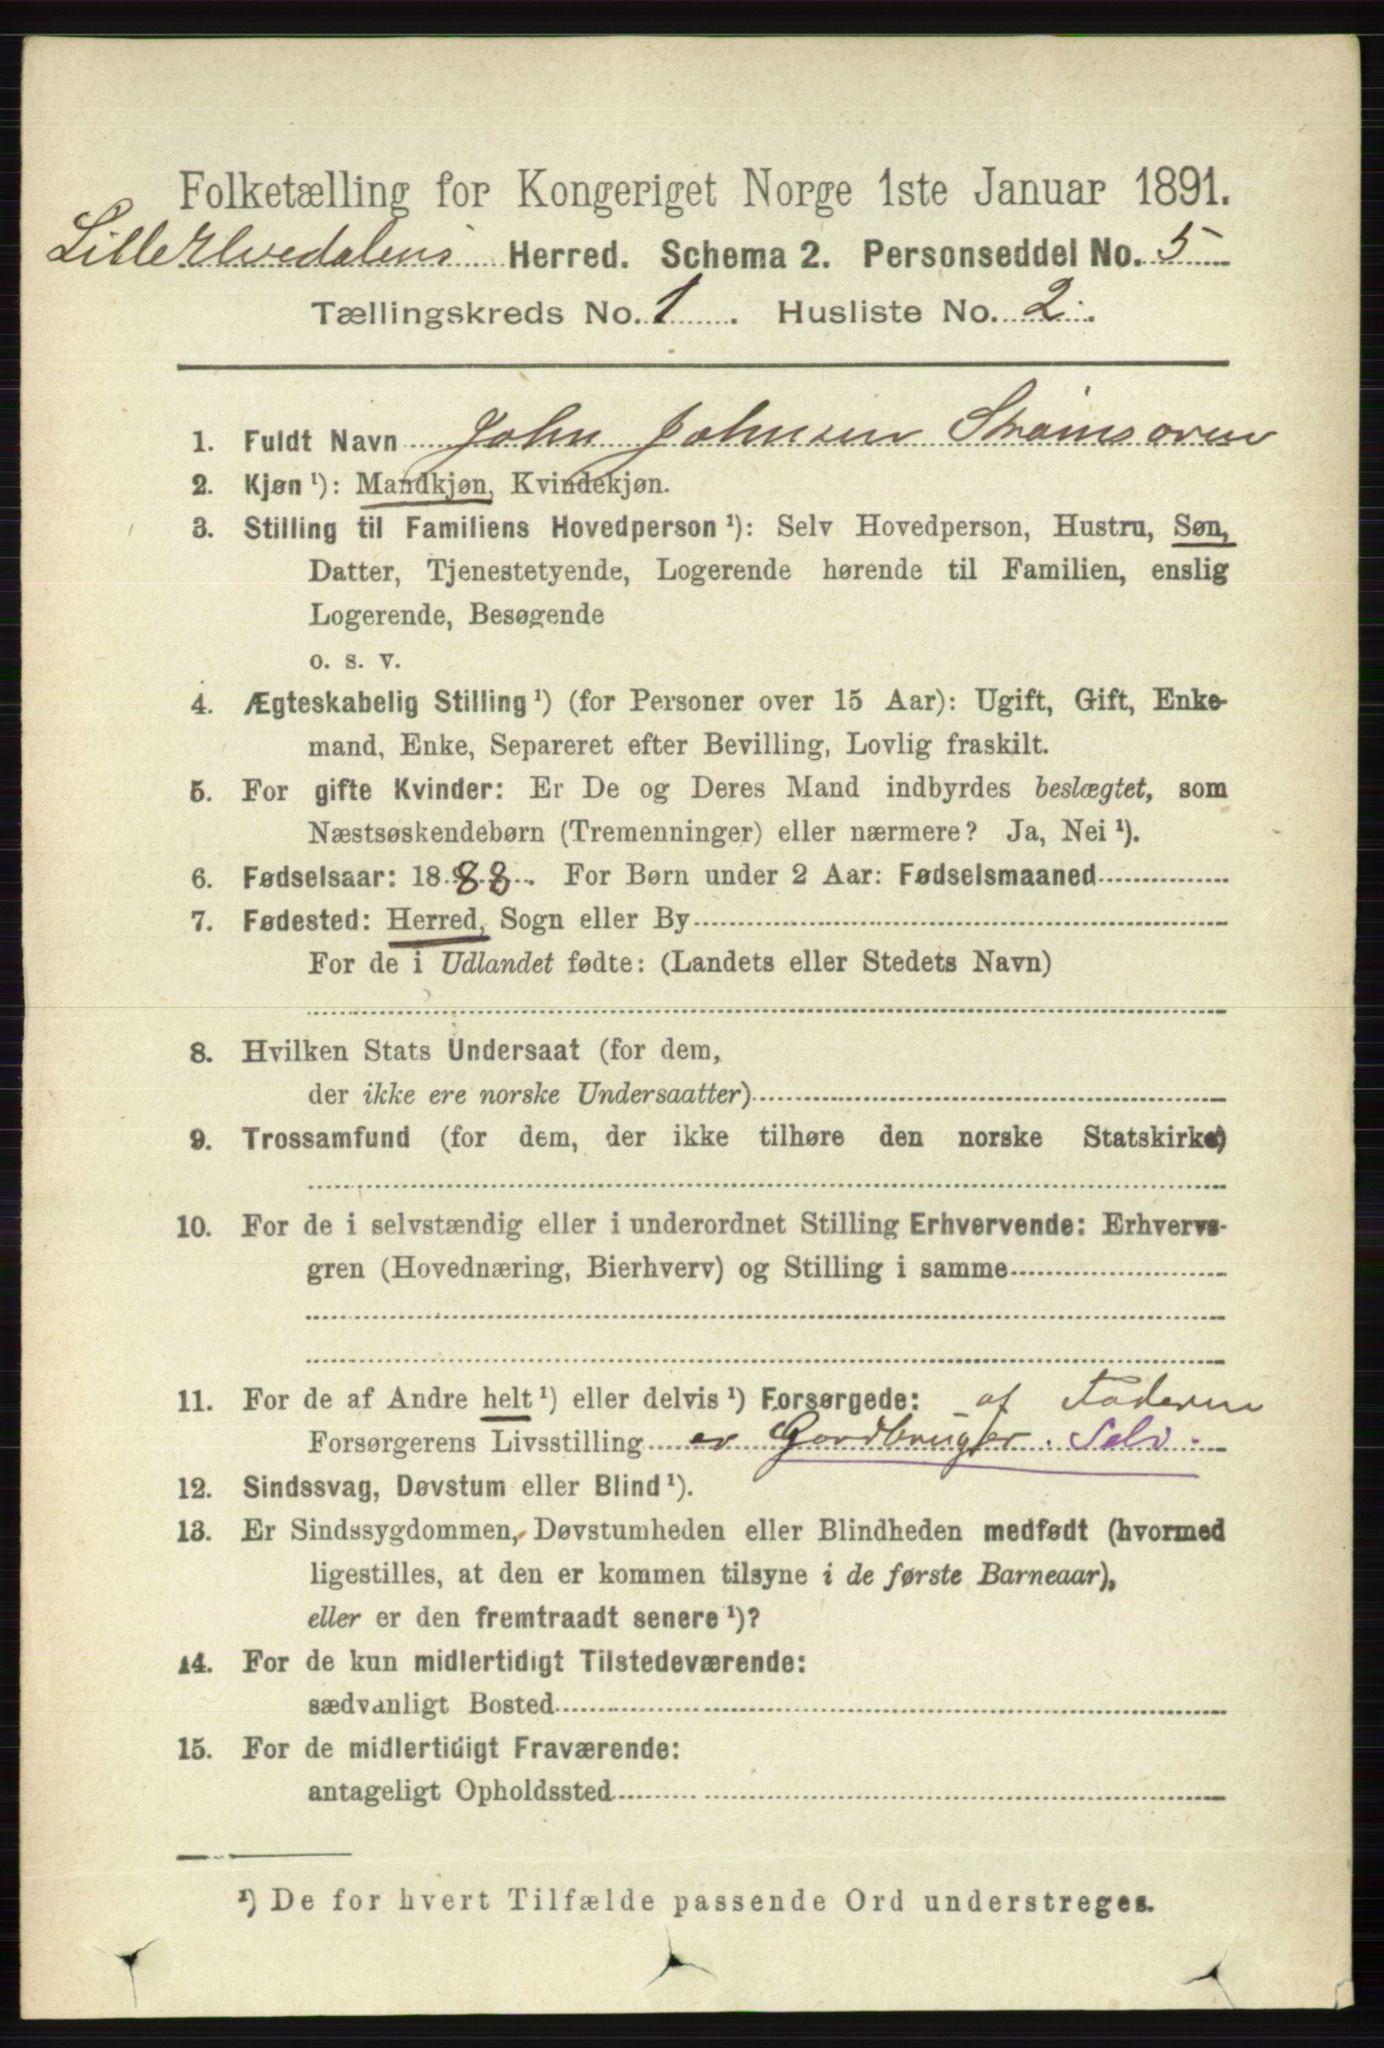 Folketælling for Kongeriget Norge 1ste Januar 1891.
Lille Elvedalens Herred. Schema 2. Personseddel No. 5
Tællingskreds No. 1. Husliste No. 2.
1. Fuldt Navn John Johnsen Strømsøren
2. Kjøn ¹): Mandkjøn, Kvindekjøn.
3. Stilling til Familiens Hovedperson ¹): Selv Hovedperson, Hustru, Søn,
Datter, Tjenestetyende, Logerende hørende til Familien, enslig
Logerende, Besøgende
o. s. v.
4. Ægteskabelig Stilling ¹) (for Personer over 15 Aar): Ugift, Gift, Enke-
mand, Enke, Separeret efter Bevilling, Lovlig fraskilt.
5. For gifte Kvinder: Er De og Deres Mand indbyrdes beslægtet, som
Næstsøskendebørn (Tremenninger) eller nærmere? Ja, Nei ¹).
6. Fødselsaar: 1888. For Børn under 2 Aar: Fødselsmaaned
7. Fødested: Herred, Sogn eller By
For de i Udlandet fødte: (Landets eller Stedets Navn)
8. Hvilken Stats Undersaat (for dem,
der ikke ere norske Undersaatter)
9. Trossamfund (for dem, der ikke tilhøre den norske Statskirke)
10. For de i selvstændig eller i underordnet Stilling Erhvervende: Erhvervs-
gren (Hovednæring, Bierhverv) og Stilling i samme
11. For de af Andre helt ¹) eller delvis ¹) Forsørgede: af Faderen
Forsørgerens Livsstilling er Gardbruger. Selv.
12. Sindssvag, Døvstum eller Blind ¹).
13. Er Sindssygdommen, Døvstumheden eller Blindheden medfødt (hvormed
ligestilles, at den er kommen tilsyne i de første Barneaar),
eller er den fremtraadt senere ¹)?
14. For de kun midlertidigt Tilstedeværende:
sædvanligt Bosted
15. For de midlertidigt Fraværende:
antageligt Opholdssted
¹) De for hvert Tilfælde passende Ord understreges.